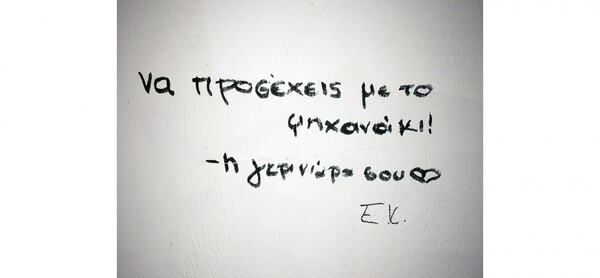 να προσέχεις με το
μηχανάκι!
-η γκρινιάρα σου ∞
Ε.Κ.